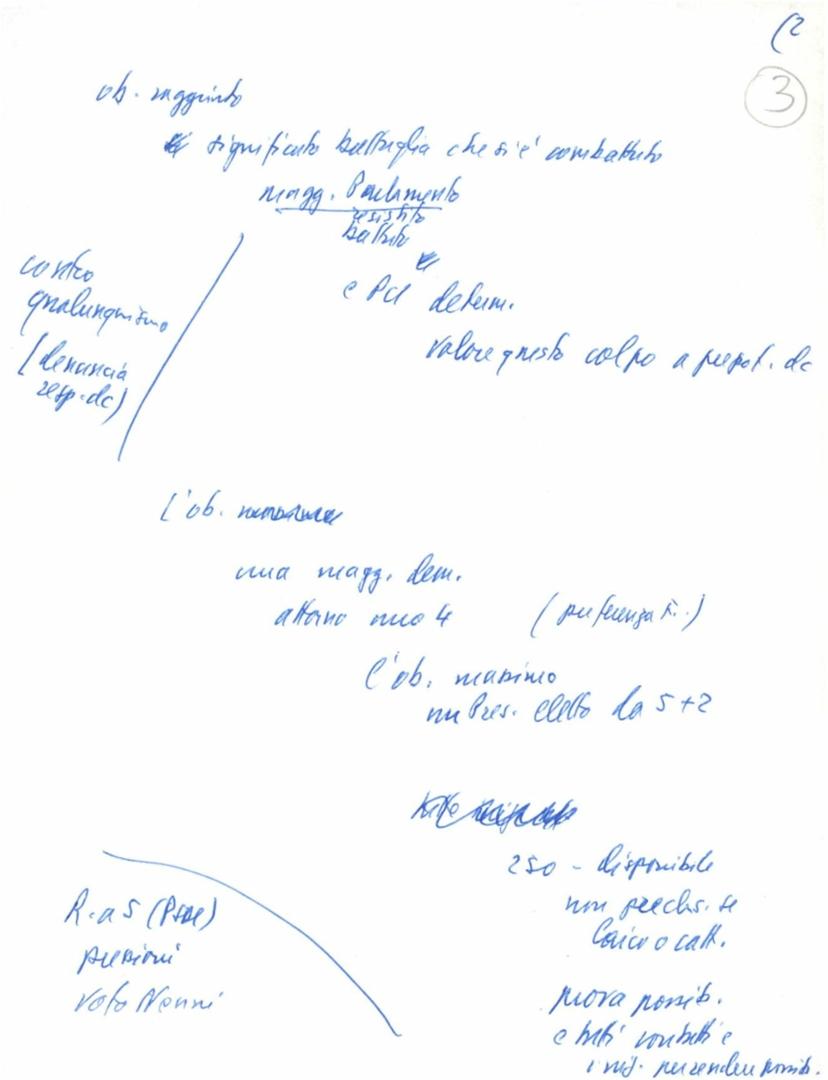 (2
3
ob. raggiunto
significato battaglia che si è combattuto
magg. Parlamento
resistito
battuto
e PCI determ.
valore questo colpo a prepot. dc
contro
qualunquismo
(denuncia
resp. dc)
L'ob.
una magg. dem.
attorno uno 4 (preferenza F.)
l'ob. massimo
un Pres. eletto da 5+2
250 - disponibile
non preclus. se
laico o catt.
R. a 5 (PSDI)
pressioni
voto Nenni
prova possib.
e tutti contatti e
per rendere possib.